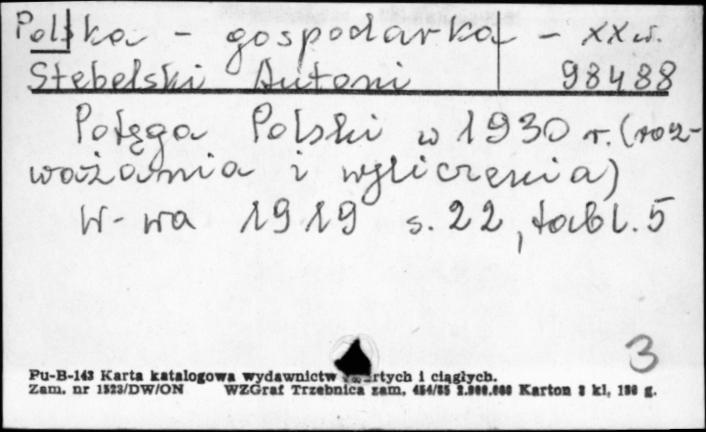 Polska - gospodarka - XX w.
Stebelski Antoni 98488
Potęga Polski w 1930 r. (roz-
ważania i wyliczenia)
W-wa 1919 s. 22, tabl. 5
3
Pu-B-143 Karta katalogowa wydawnictw zwartych i ciągłych.
Zam. nr 1523/DW/ON WZGraf Trzebnica zam. 454/85 2.000.000 Karton 3 kl. 180 g.